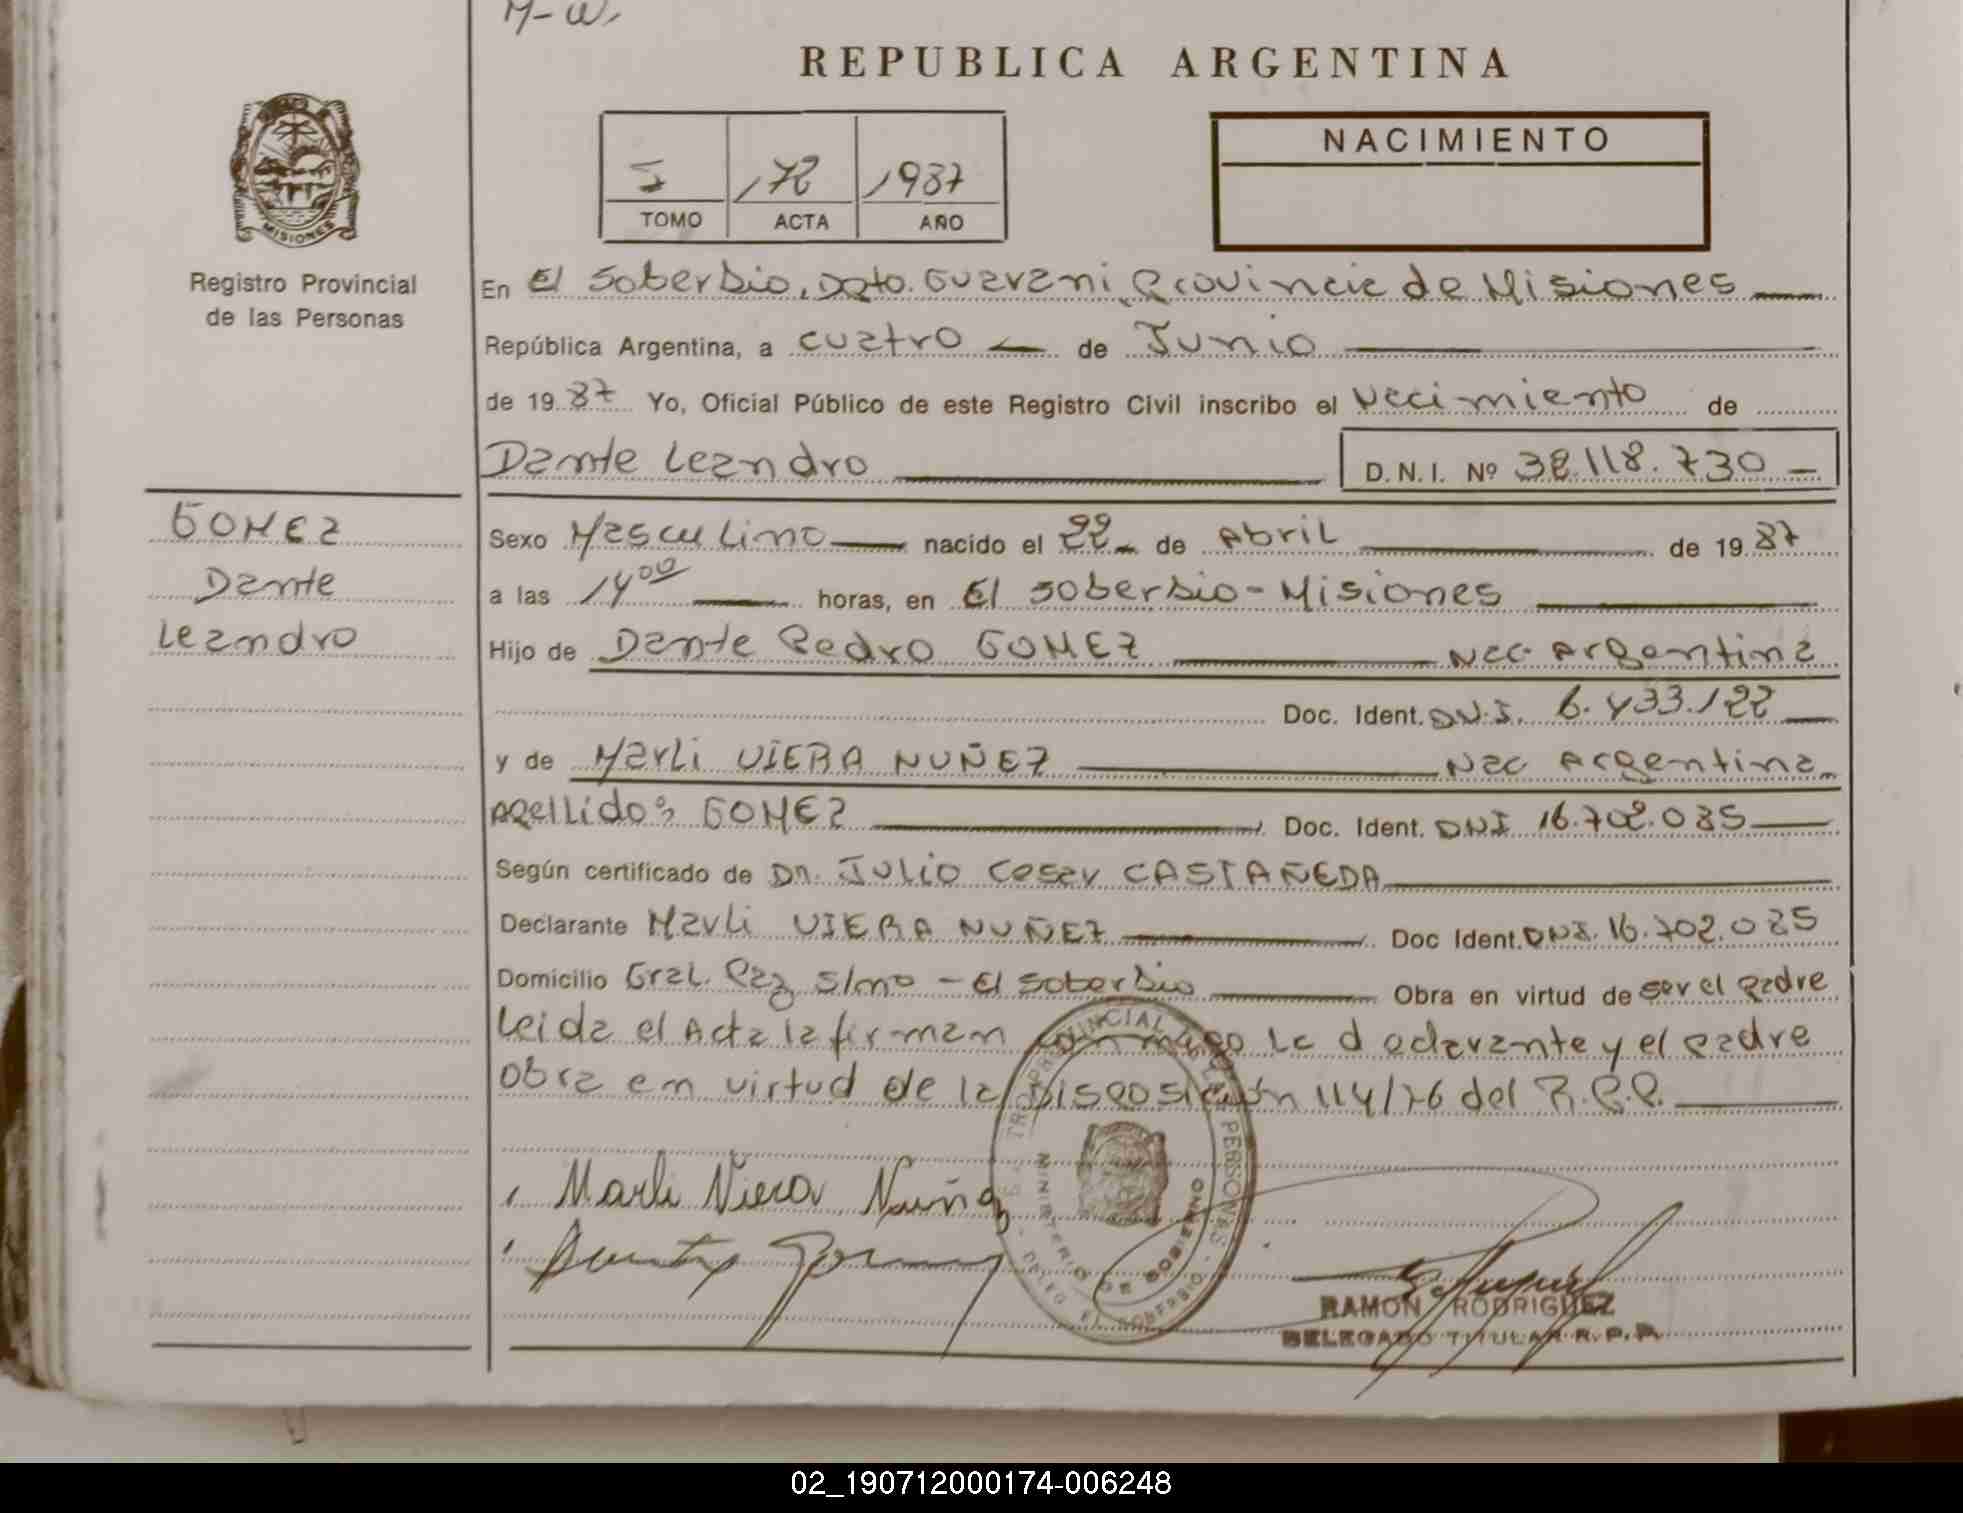 M-W,
REPUBLICA ARGENTINA
NACIMIENTO
I 172 1987
TOMO ACTA AÑO
MISIONES
Registro Provincial
de las Personas
En El Soberbio, Dpto. Guarani, Provincia de Misiones
República Argentina, a cuatro de Junio
de 1987 Yo, Oficial Público de este Registro Civil inscribo el Nacimiento de
Dante Leandro D.N.I. Nº 32.118.730
GOMEZ
Dante
Leandro
Sexo Masculino nacido el 22 de Abril de 1987
a las 14 00 horas, en El Soberbio - Misiones
Hijo de Dante Pedro GOMEZ Nac Argentina
Doc. Ident. D.N.I. 6.433.122
y de Marli VIERA NUÑEZ Nac Argentina
Apellido: GOMEZ Doc. Ident. DNI 16.702.085
Según certificado de Dn. Julio Cesar CASTAÑEDA
Declarante Marli VIERA NUÑEZ Doc Ident. DNI. 16.702.085
Domicilio Gral. Paz s/no - El Soberbio Obra en virtud de ser el padre
Leida el Acta la firman conmigo la declarante y el padre
obra en virtud de la Disposición 114/76 del R.P.P.
Marli Viera Nuñez
PROVINCIAL DE LAS PERSONAS
MINISTERIO DE GOBIERNO
DELEG. EL SOBERBIO
RAMON RODRIGUEZ
DELEGADO TITULAR R.P.P.
02_190712000174-006248